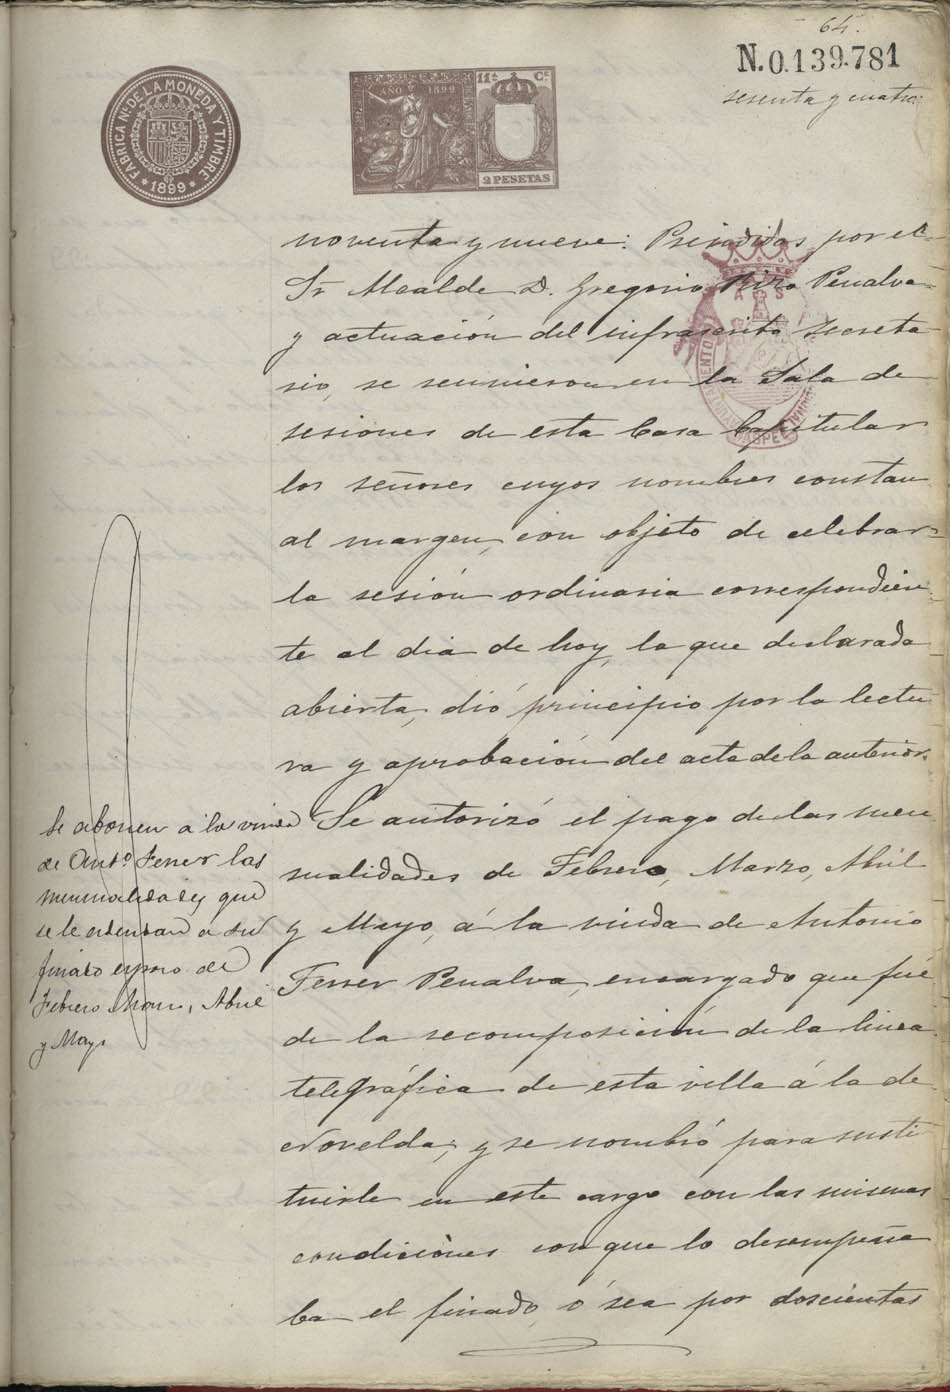 64.
N.0.139.781
sesenta y cuatro
FABRICA Nl. DE LA MONEDA Y TIMBRE
1899
AÑO 1899
11ª Cª
2 PESETAS
noventa y nueve: Presididos por el
Sr. Alcalde D. Gregorio Rizo Penalva
y actuación del infrascrito Secreta
rio, se reunieron en la Sala de
sesiones de esta Casa Capitular
los señores cuyos nombres constan
al margen, con objeto de celebrar
la sesión ordinaria correspondien
te al dia de hoy, la que declarada
abierta, dió principio por la lectu
ra y aprobación del acta de la anterior.
Se autorizó el pago de las men
sualidades de Febrero, Marzo, Abril
y Mayo, á la viuda de Antonio
Ferrer Penalva, encargado que fué
de la recomposición de la linea
telegráfica de esta villa á la de
Novelda; y se nombró para susti
tuirle en este cargo con las mismas
condiciónes con que lo desempeña
ba el finado, ó sea por doscientas
Se abonen a la viuda
de Antº. Ferrer las
mensualidades que
se le adeudan a su
finado esposo de
Febrero Marzo, Abril
y Mayo